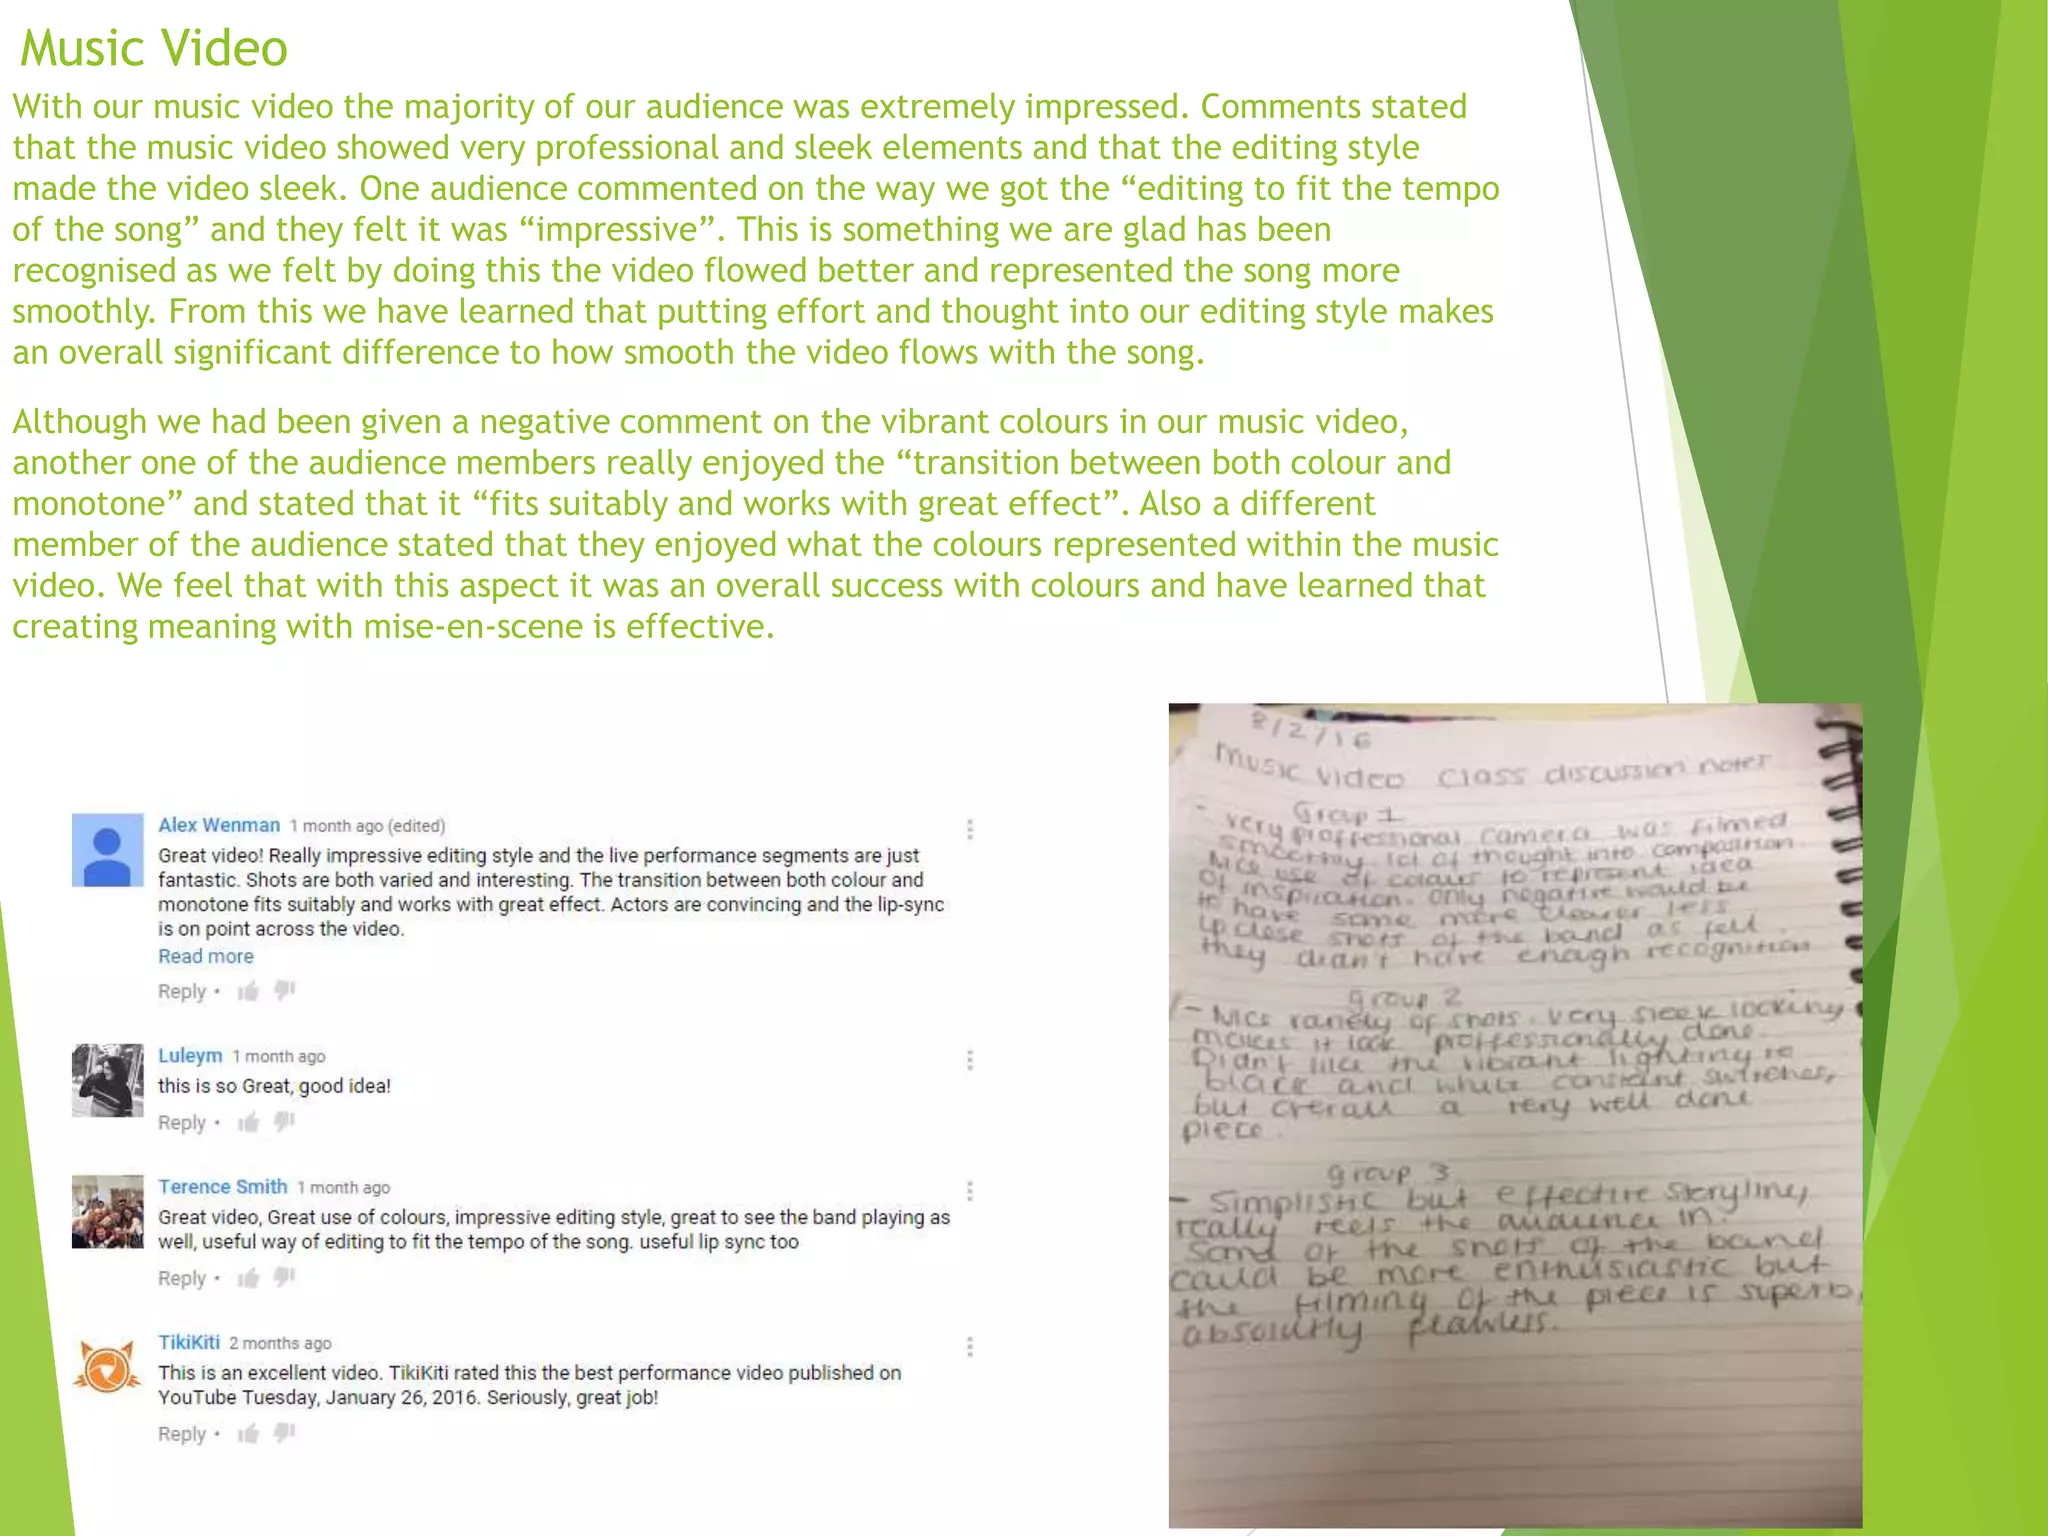 Music Video
With our music video the majority of our audience was extremely impressed. Comments stated
that the music video showed very professional and sleek elements and that the editing style
made the video sleek. One audience commented on the way we got the “editing to fit the tempo
of the song” and they felt it was “impressive”. This is something we are glad has been
recognised as we felt by doing this the video flowed better and represented the song more
smoothly. From this we have learned that putting effort and thought into our editing style makes
an overall significant difference to how smooth the video flows with the song.
Although we had been given a negative comment on the vibrant colours in our music video,
another one of the audience members really enjoyed the “transition between both colour and
monotone” and stated that it “fits suitably and works with great effect”. Also a different
member of the audience stated that they enjoyed what the colours represented within the music
video. We feel that with this aspect it was an overall success with colours and have learned that
creating meaning with mise-en-scene is effective.
Alex Wenman 1 month ago (edited)
Great video! Really impressive editing style and the live performance segments are just
fantastic. Shots are both varied and interesting. The transition between both colour and
monotone fits suitably and works with great effect. Actors are convincing and the lip-sync
is on point across the video.
Read more
Reply •
Luleym 1 month ago
this is so Great, good idea!
Reply •
Terence Smith 1 month ago
Great video, Great use of colours, impressive editing style, great to see the band playing as
well, useful way of editing to fit the tempo of the song. useful lip sync too
Reply •
TikiKiti 2 months ago
This is an excellent video. TikiKiti rated this the best performance video published on
YouTube Tuesday, January 26, 2016. Seriously, great job!
Reply •
8/2/16
Music Video Class discussion notes
Group 1
- very proffessional camera was filmed
smoothly lot of thought into composition.
Nice use of colours to represent idea
of inspiration. Only negative would be
to have some more clearer less
up close shots of the band as felt
they didn't have enough recognition
group 2
- Nice variety of shots. very sleek looking
makes it look proffessionally done.
Didn't like the vibrant lighting to
black and white constant switches,
but overall a very well done
piece.
group 3
- Simplistic but effective storyline,
really reels the audience in.
Some of the shots of the band
could be more enthusiastic but
the filming of the piece is superb,
absolutly flawless.